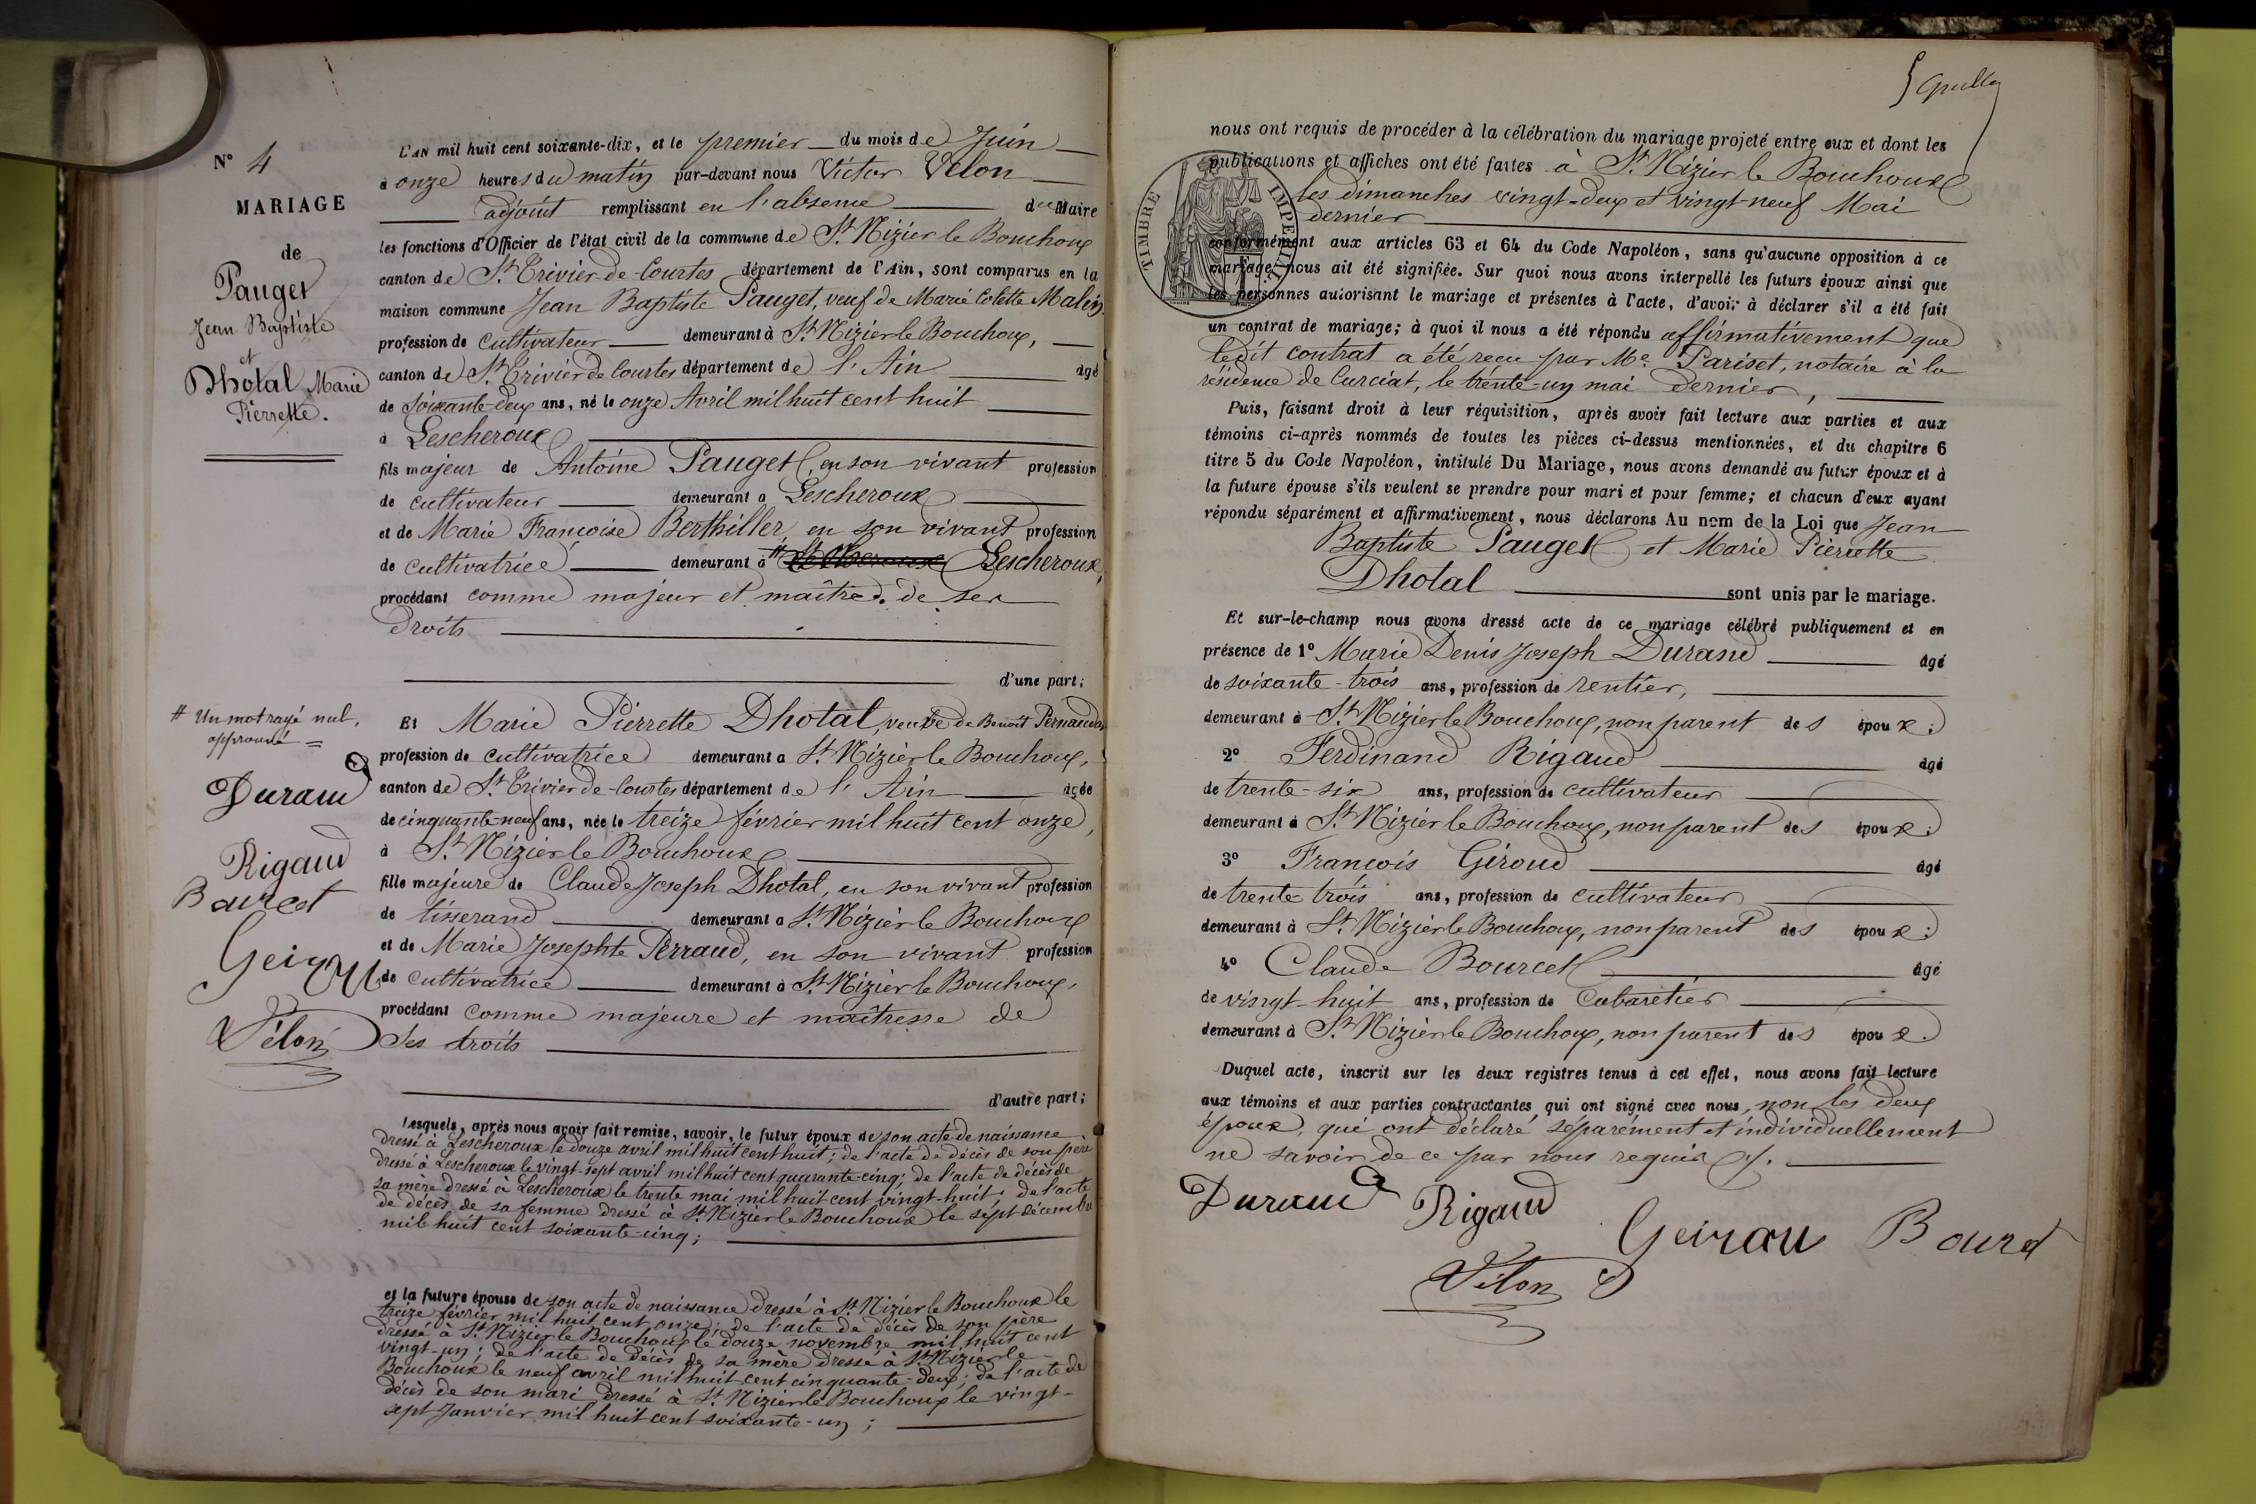 N° 4
MARIAGE
de
Pauget
Jean Baptiste
et
Dhotal Marie
Pierrette.
L'AN mil huit cent soixante-dix, et le premier du mois de Juin
à onze heures du matin par-devant nous Victor Vélon
adjoint remplissant en l'absence du Maire
les fonctions d'Officier de l'état civil de la commune de St Nizier le Bouchoux
canton de St Trivier-de-Courtes département de l'Ain, sont comparus en la
maison commune Jean Baptiste Pauget, veuf de Marie Colette Malin
profession de cultivateur demeurant à St Nizier le Bouchoux,
canton de St Trivier de Courtes département de l'Ain âgé
de soixante-deux ans, né le onze Avril mil huit cent huit
à Lescheroux
fils majeur de Antoine Pauget, en son vivant profession
de cultivateur demeurant à Lescheroux
et de Marie Françoise Berthiller, en son vivant profession
de cultivatrice demeurant à # Lescheroux,
procédant comme majeur et maître de ses
droits
d'une part;
# Un mot rayé nul,
approuvé =
Durand
Rigaud
Bourcet
Vélon
Et Marie Pierrette Dhotal, veuve de Benoit
profession de cultivatrice demeurant à St Nizier le Bouchoux,
canton de St Trivier-de-Courtes département de l'Ain âgée
de cinquante-neuf ans, née le treize février mil huit cent onze,
à St Nizier le Bouchoux
fille majeure de Claude Joseph Dhotal, en son vivant profession
de tisserand demeurant à St Nizier le Bouchoux
et de Marie Josephte Perraud, en son vivant profession
de cultivatrice demeurant à St Nizier le Bouchoux,
procédant comme majeure et maîtresse de
ses droits
d'autre part;
Lesquels, après nous avoir fait remise, savoir, le futur époux de son acte de naissance
dressé à Lescheroux le douze avril mil huit cent huit; de l'acte de décès de son père
dressé à Lescheroux le vingt sept avril mil huit cent quarante-cinq; de l'acte de décès de
sa mère dressé à Lescheroux le trente mai mil huit cent vingt-huit; de l'acte
de décès de sa femme dressé à St Nizier le Bouchoux le sept décembre
mil huit cent soixante-cinq;
et la future épouse de son acte de naissance dressé à St Nizier le Bouchoux le
treize février mil huit cent onze; de l'acte de décès de son père
dressé à St Nizier le Bouchoux le douze novembre mil huit cent
vingt-un; de l'acte de décès de sa mère dressé à St Nizier le
Bouchoux le neuf avril mil huit cent cinquante-deux; de l'acte de
décès de son mari dressé à St Nizier le Bouchoux le vingt-
sept Janvier mil huit cent soixante-un;
TIMBRE IMPERIAL
nous ont requis de procéder à la célébration du mariage projeté entre eux et dont les
publications et affiches ont été faites à St Nizier le Bouchoux
les dimanches vingt-deux et vingt-neuf Mai
dernier
conformément aux articles 63 et 64 du Code Napoléon, sans qu'aucune opposition à ce
mariage nous ait été signifiée. Sur quoi nous avons interpellé les futurs époux ainsi que
les personnes autorisant le mariage et présentes à l'acte, d'avoir à déclarer s'il a été fait
un contrat de mariage; à quoi il nous a été répondu affirmativement que
ledit contrat a été reçu par Me Pariset, notaire à la
résidence de Curciat, le trente-un mai dernier,
Puis, faisant droit à leur réquisition, après avoir fait lecture aux parties et aux
témoins ci-après nommés de toutes les pièces ci-dessus mentionnées, et du chapitre 6
titre 5 du Code Napoléon, intitulé Du Mariage, nous avons demandé au futur époux et à
la future épouse s'ils veulent se prendre pour mari et pour femme; et chacun d'eux ayant
répondu séparément et affirmativement, nous déclarons Au nom de la Loi que Jean
Baptiste Pauget et Marie Pierrette
Dhotal sont unis par le mariage.
Et sur-le-champ nous avons dressé acte de ce mariage célébré publiquement et en
présence de 1° Marie Denis Joseph Durand âgé
de soixante-trois ans, profession de rentier,
demeurant à St Nizier le Bouchoux, non parent des époux;
2° Ferdinand Rigaud âgé
de trente-six ans, profession de cultivateur
demeurant à St Nizier le Bouchoux, non parent des époux;
3° François Giroud âgé
de trente trois ans, profession de cultivateur
demeurant à St Nizier le Bouchoux, non parent des époux;
4° Claude Bourcet âgé
de vingt-huit ans, profession de Cabaretier
demeurant à St Nizier le Bouchoux, non parent des époux.
Duquel acte, inscrit sur les deux registres tenus à cet effet, nous avons fait lecture
aux témoins et aux parties contractantes qui ont signé avec nous, non les deux
époux, qui ont déclaré séparément et individuellement
ne savoir de ce par nous requis
Durand Rigaud Geirau Bourcet
Vélon